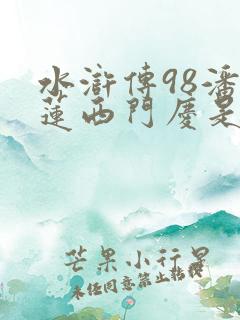 水滸傳98潘
蓮西門慶是
芒果小行星
未经同意禁止转载